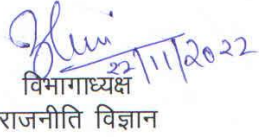 22/11/2022
विभागाध्यक्ष
राजनीति विज्ञान